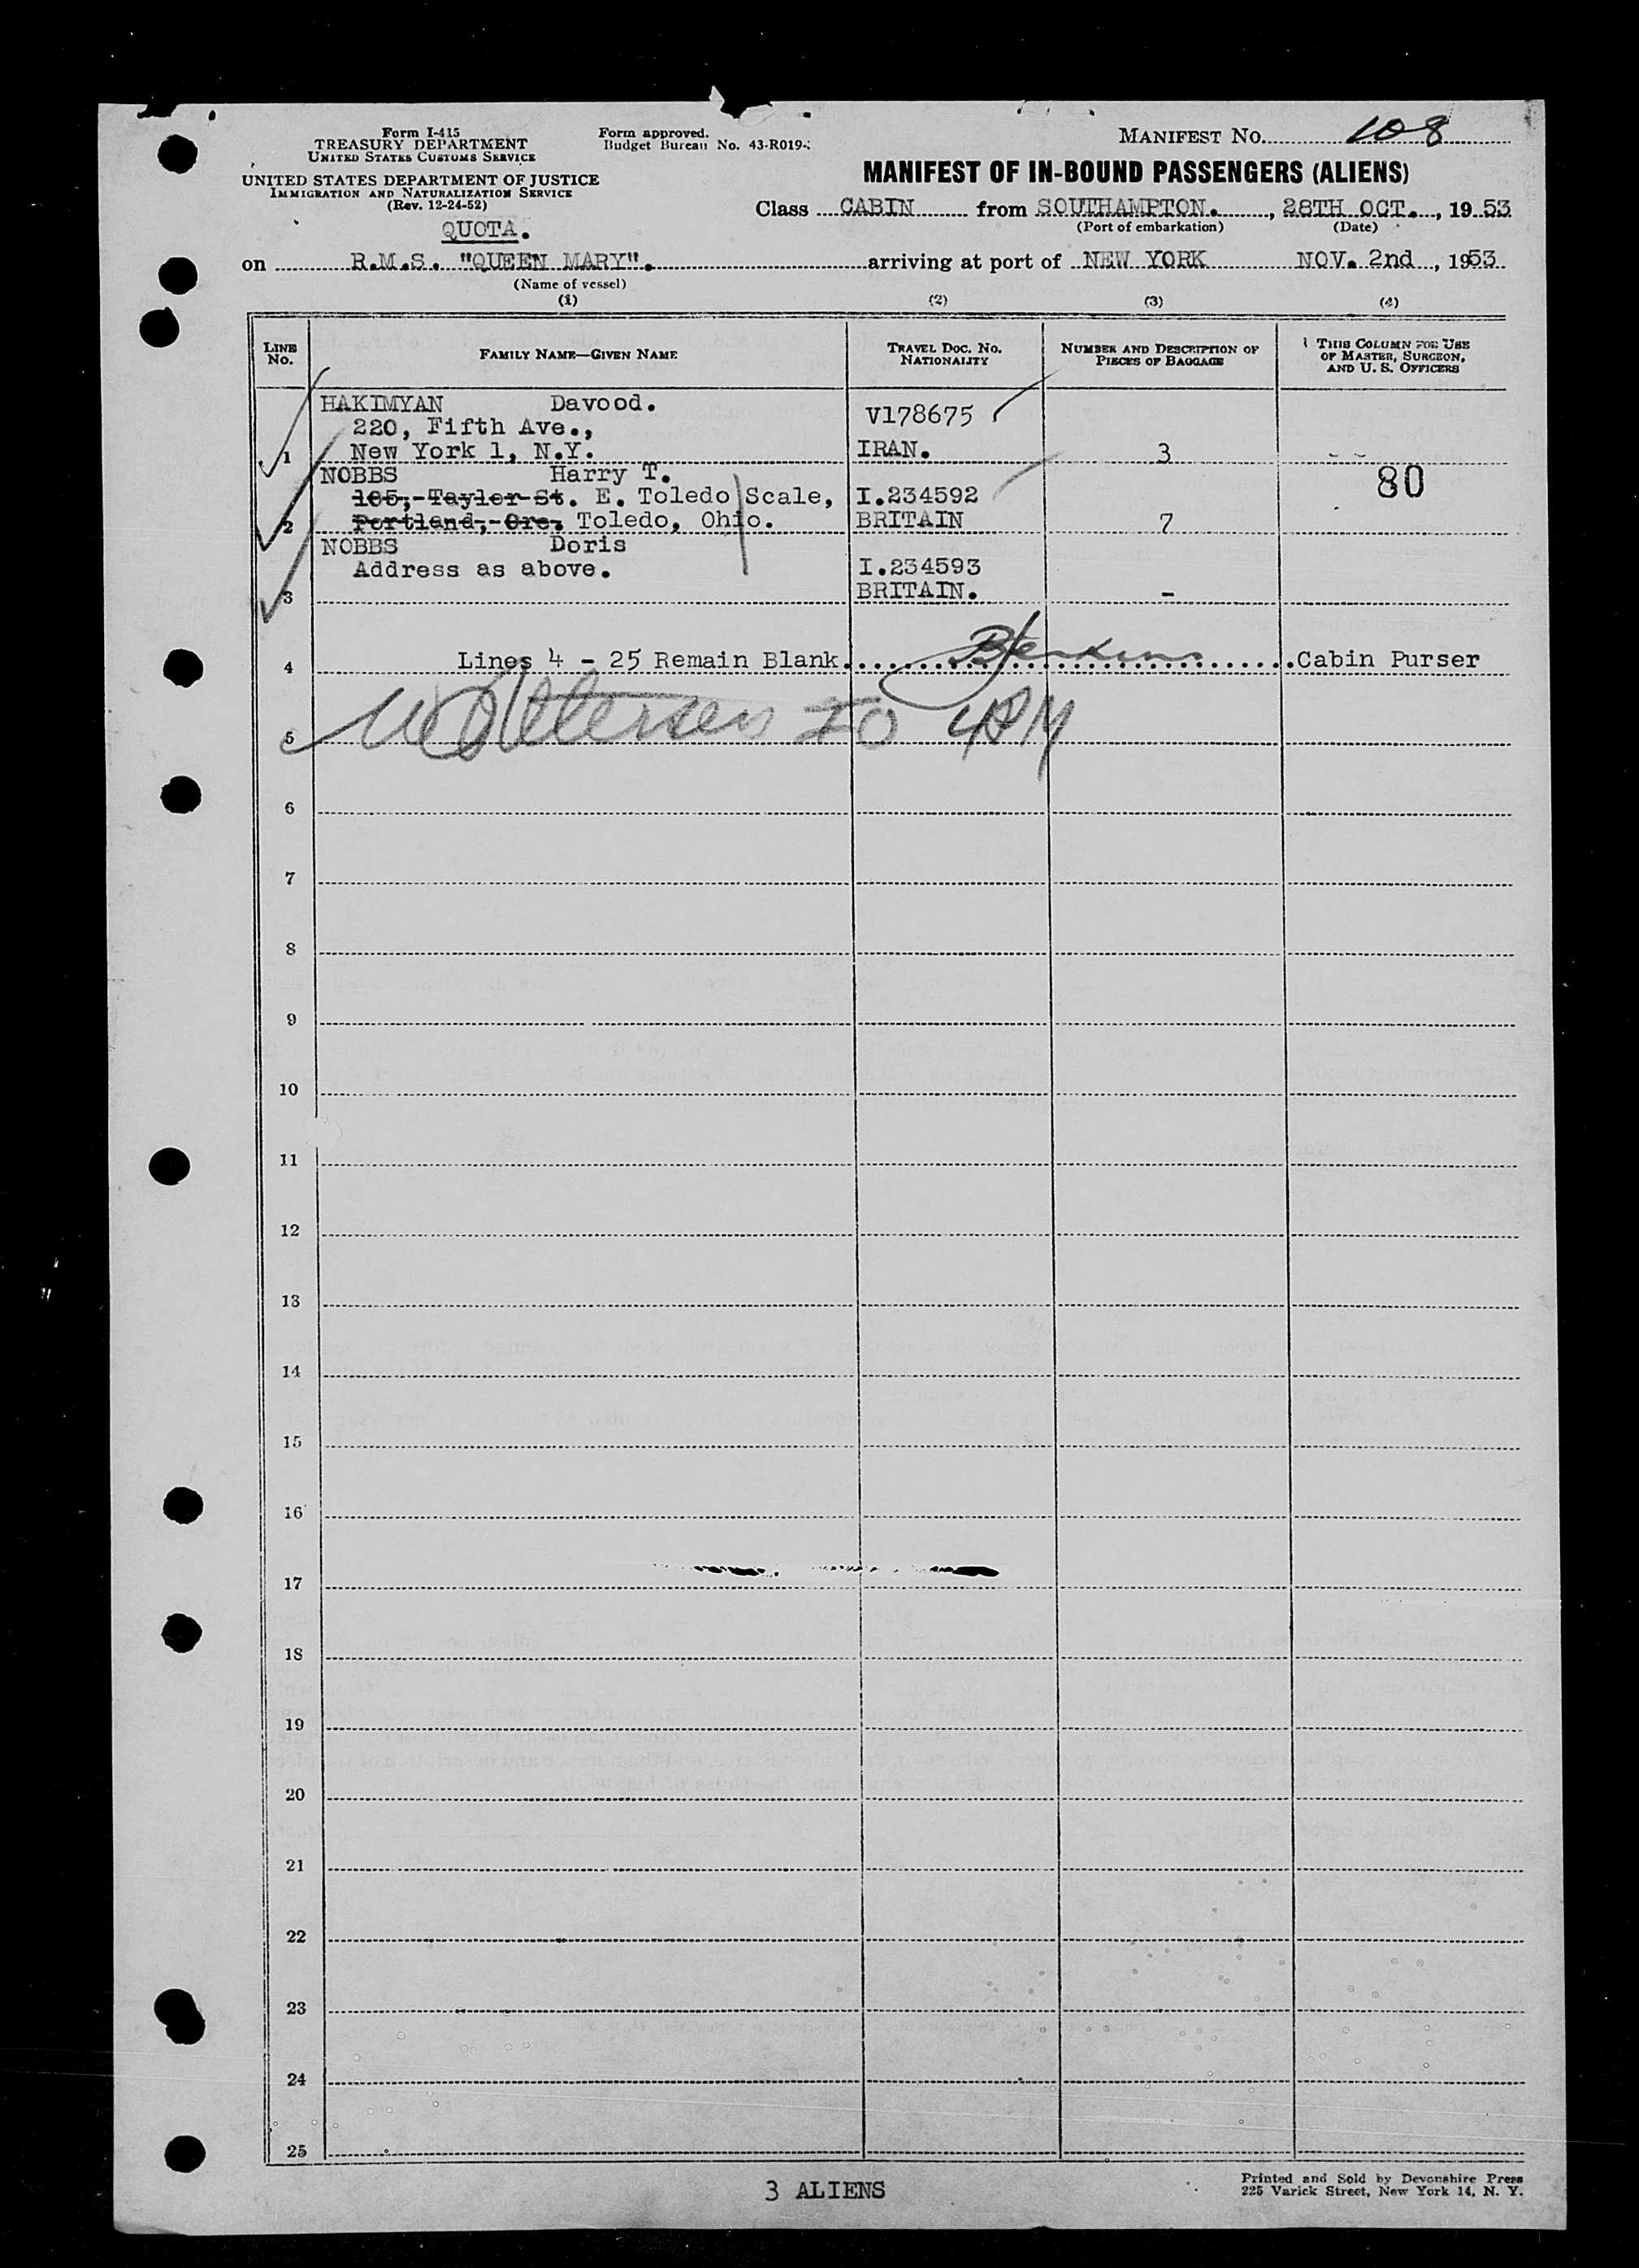 Form I-415
TREASURY DEPARTMENT
UNITED STATES CUSTOMS SERVICE
UNITED STATES DEPARTMENT OF JUSTICE
IMMIGRATION AND NATURALIZATION SERVICE
(Rev. 12-24-52)
Form approved.
Budget Bureau No. 43-R019-
MANIFEST No. 108
MANIFEST OF IN-BOUND PASSENGERS (ALIENS)
Class CABIN from SOUTHAMPTON. , 28TH OCT. , 19 53
(Port of embarkation) (Date)
QUOTA.
on R.M.S. "QUEEN MARY". arriving at port of NEW YORK NOV. 2nd , 1953
(Name of vessel)
(1) (2) (3) (4)
LINE No. FAMILY NAME—GIVEN NAME TRAVEL DOC. No. NATIONALITY NUMBER AND DESCRIPTION OF PIECES OF BAGGAGE THIS COLUMN FOR USE OF MASTER, SURGEON, AND U. S. OFFICERS
HAKIMYAN Davood. V178675
220, Fifth Ave.,
1 New York 1, N.Y. IRAN. 3
NOBBS Harry T. 80
105, Tayler St. E. Toledo Scale, I.234592
2 Portland, Ore, Toledo, Ohio. BRITAIN 7
NOBBS Doris
Address as above. I.234593
3 BRITAIN. -
4 Lines 4 - 25 Remain Blank. Cabin Purser
5
6
7
8
9
10
11
12
13
14
15
16
17
18
19
20
21
22
23
24
25
3 ALIENS
Printed and Sold by Devonshire Press
225 Varick Street, New York 14, N. Y.